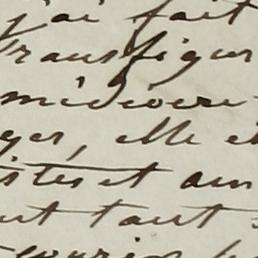 j'ai fait
Transfigur
médiocre
ger, elle e
istes et au
ut tout